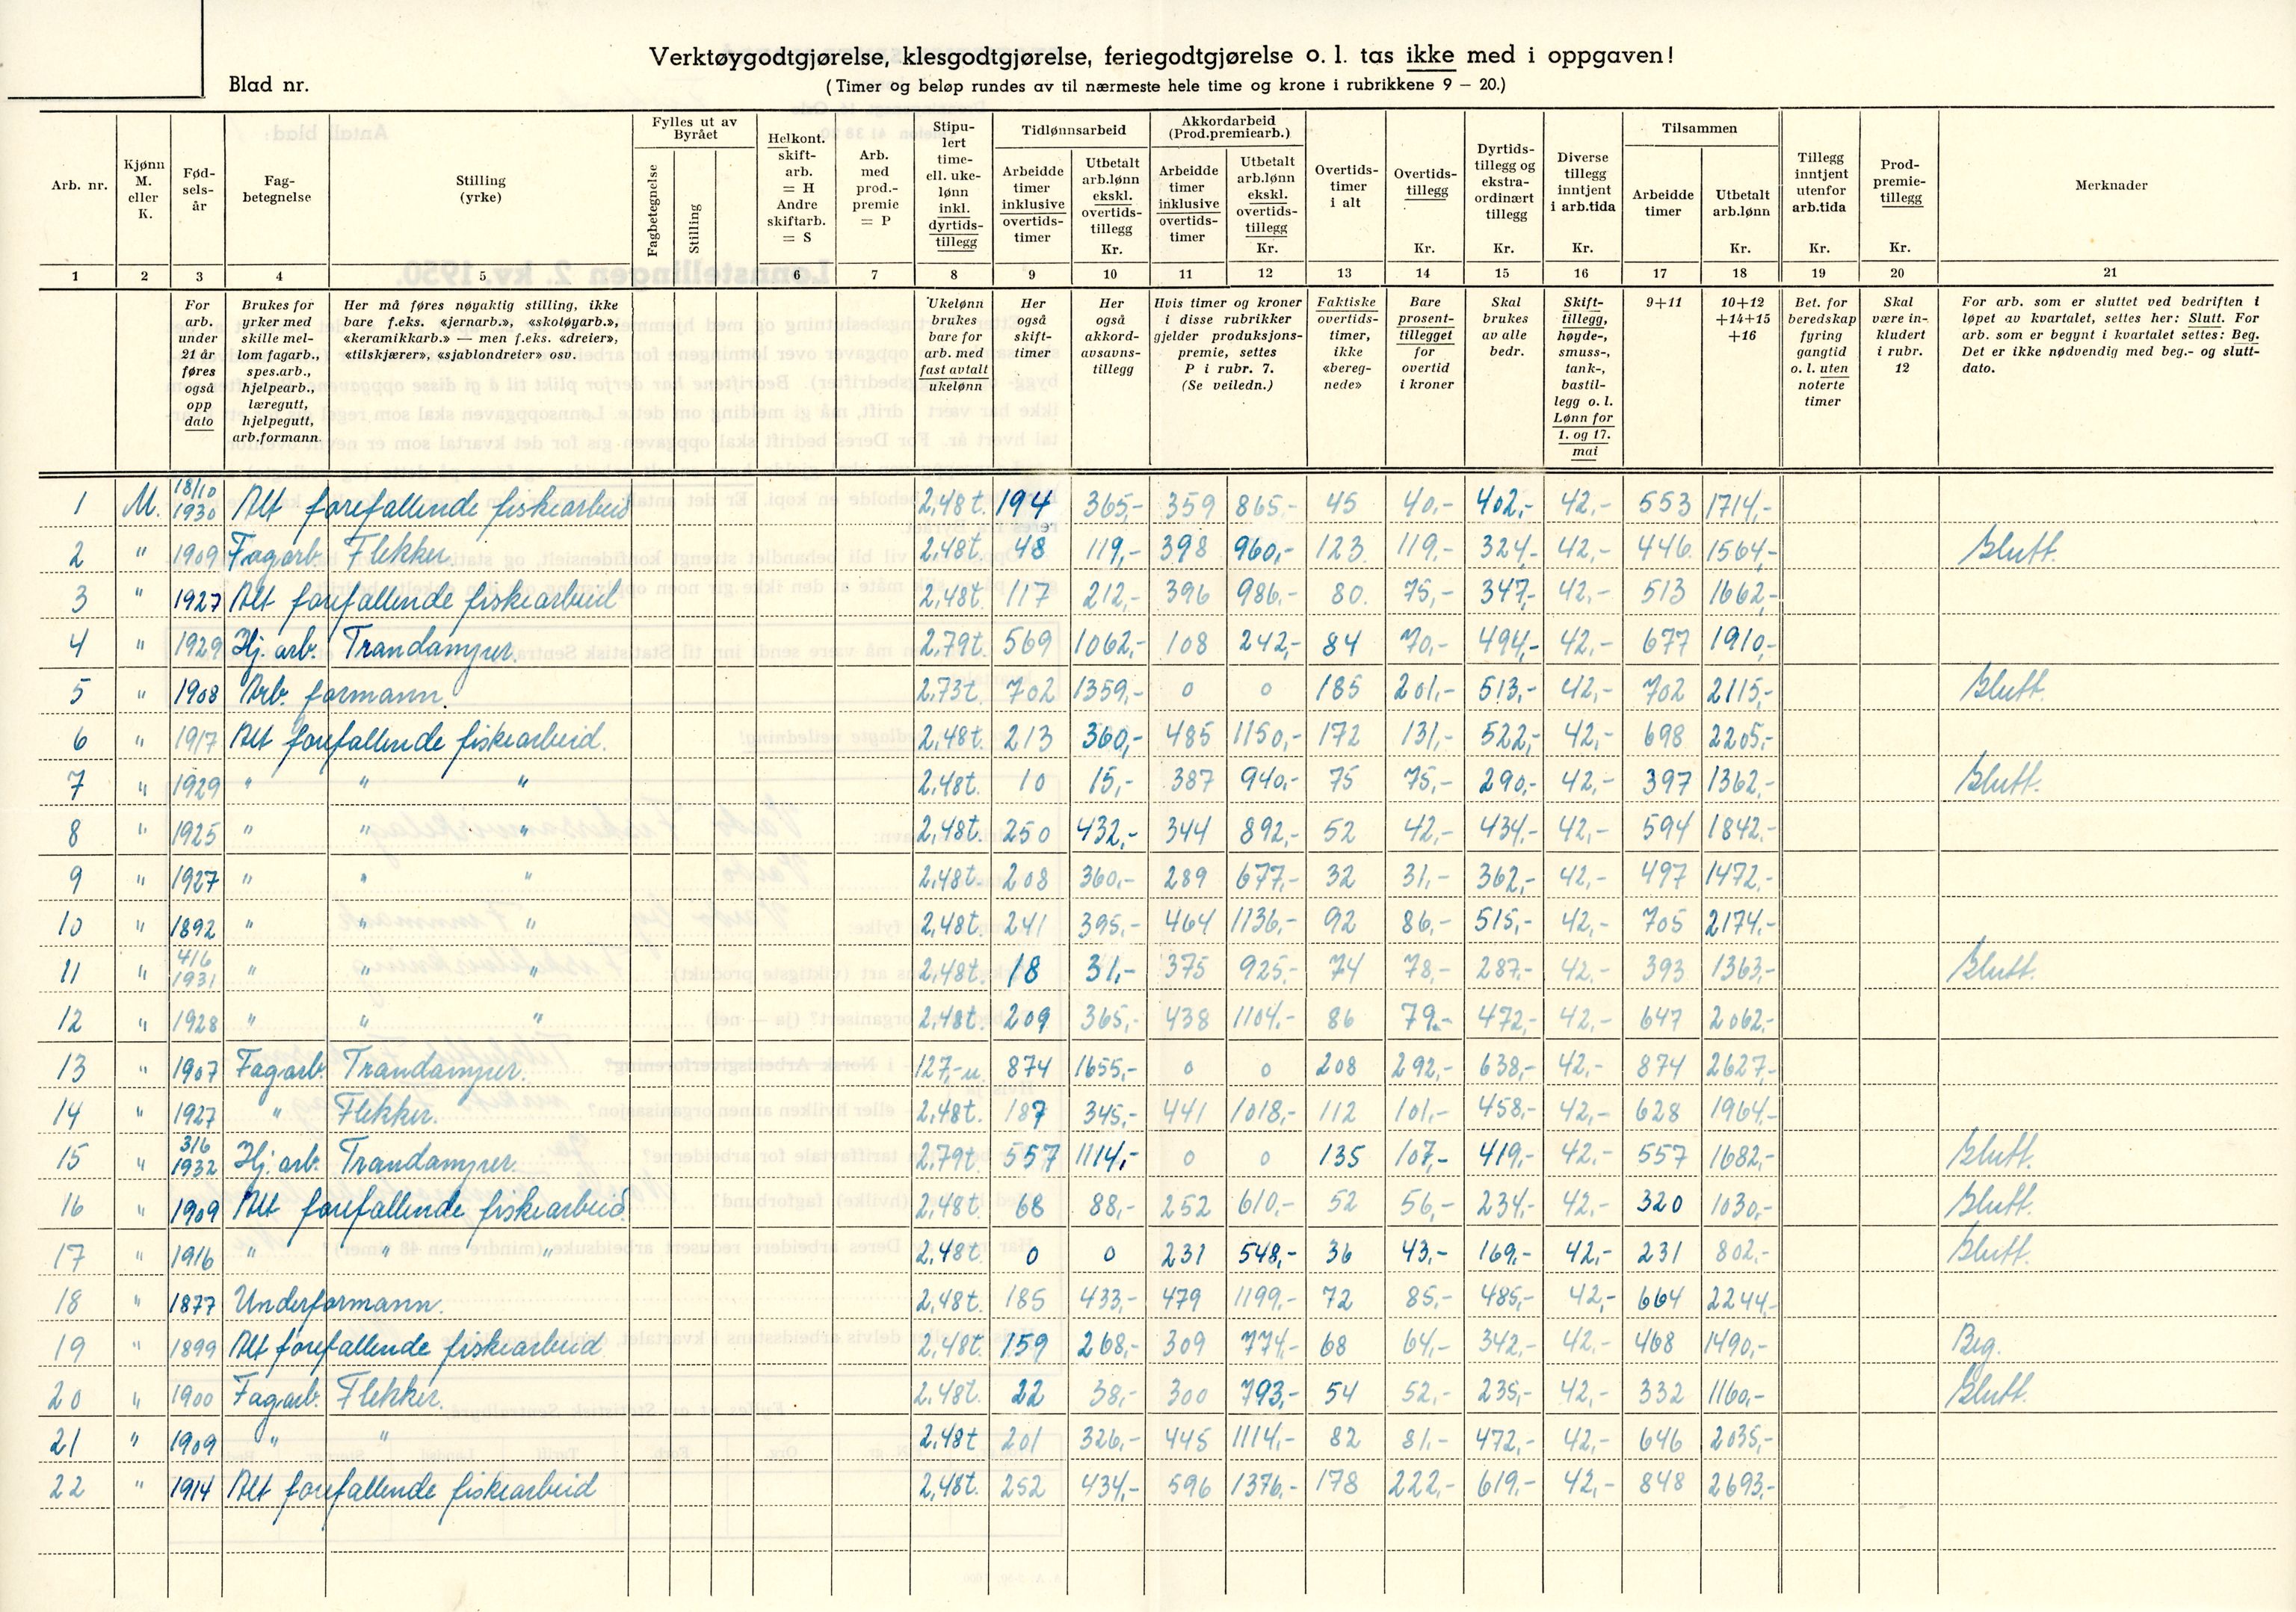 Verktøygodtgjørelse, klesgodtgjørelse, feriegodtgjørelse o. l. tas ikke med i oppgaven!
Blad nr.
(Timer og beløp rundes av til nærmeste hele time og krone i rubrikkene 9 – 20.)
Arb. nr.
Kjønn M. eller K.
Fød-sels-år
Fag-betegnelse
Stilling (yrke)
Fylles ut av Byrået
Fagbetegnelse
Stilling
Helkont. skift-arb. = H Andre skiftarb. = S
Arb. med prod.-premie = P
Stipu-lert time- ell. uke-lønn inkl. dyrtids-tillegg
Tidlønnsarbeid
Arbeidde timer inklusive overtids-timer
Utbetalt arb.lønn ekskl. overtids-tillegg Kr.
Akkordarbeid (Prod.premiearb.)
Arbeidde timer inklusive overtids-timer
Utbetalt arb.lønn ekskl. overtids-tillegg Kr.
Overtids-timer i alt
Overtids-tillegg Kr.
Dyrtids-tillegg og ekstra-ordinært tillegg Kr.
Diverse tillegg inntjent i arb.tida Kr.
Tilsammen
Arbeidde timer
Utbetalt arb.lønn Kr.
Tillegg inntjent utenfor arb.tida Kr.
Prod-premie-tillegg Kr.
Merknader
1 2 3 4 5 6 7 8 9 10 11 12 13 14 15 16 17 18 19 20 21
For arb. under 21 år føres også opp dato
Brukes for yrker med skille mel-lom fagarb., spes.arb., hjelpearb., læregutt, hjelpegutt, arb.formann
Her må føres nøyaktig stilling, ikke bare f.eks. «jernarb.», «skotøyarb.», «keramikkarb.» — men f.eks. «dreier», «tilskjærer», «sjablondreier» osv.
Ukelønn brukes bare for arb. med fast avtalt ukelønn
Her også skift-timer
Her også akkord-avsavns-tillegg
Hvis timer og kroner i disse rubrikker gjelder produksjons-premie, settes P i rubr. 7. (Se veiledn.)
Faktiske overtids-timer, ikke «bereg-nede»
Bare prosent-tillegget for overtid i kroner
Skal brukes av alle bedr.
Skift-tillegg, høyde-, smuss-, tank-, bastil-legg o. l. Lønn for 1. og 17. mai
9+11
10+12 +14+15 +16
Bet. for beredskap fyring gangtid o. l. uten noterte timer
Skal være in-kludert i rubr. 12
For arb. som er sluttet ved bedriften i løpet av kvartalet, settes her: Slutt. For arb. som er begynt i kvartalet settes: Beg. Det er ikke nødvendig med beg.- og slutt-dato.
1 M. 18/10 1930 Alt forefallende fiskearbeid 2,48 t. 194 365,- 359 865,- 45 40,- 402,- 42,- 553 1714,-
2 " 1909 Fagarb. Flekker. 2,48t. 48 119,- 398 960,- 123. 119,- 324,- 42,- 446. 1564,- Slutt.
3 " 1927 Alt forefallende fiskearbeid 2,48t. 117 212,- 396 986,- 80. 75,- 347,- 42,- 513 1662,-
4 " 1929 Hj. arb. Trandamper. 2,79t. 569 1062,- 108 242,- 84 70,- 494,- 42,- 677 1910,-
5 " 1908 Arb. formann. 2,73t. 702 1359,- 0 0 185 201,- 513,- 42,- 702 2115,- Slutt.
6 " 1917 Alt forefallende fiskearbeid. 2,48t. 213 360,- 485 1150,- 172 131,- 522,- 42,- 698 2205,-
7 " 1929 " " " 2,48t. 10 15,- 387 940,- 75 75,- 290,- 42,- 397 1362,- Slutt.
8 " 1925 " " " 2,48t. 250 432,- 344 892,- 52 42,- 434,- 42,- 594 1842,-
9 " 1927 " " " 2,48t. 208 360,- 289 677,- 32 31,- 362,- 42,- 497 1472,-
10 " 1892 " " " 2,48t. 241 395,- 464 1136,- 92 86,- 515,- 42,- 705 2174,-
11 " 4/6 1931 " " " 2,48t. 18 31,- 375 925,- 74 78,- 287,- 42,- 393 1363,- Slutt.
12 " 1928 " " " 2,48t. 209 365,- 438 1104,- 86 79,- 472,- 42,- 647 2062,-
13 " 1907 Fagarb. Trandamper. 127,-u. 874 1655,- 0 0 208 292,- 638,- 42,- 874 2627,-
14 " 1927 " Flekker. 2,48t. 187 345,- 441 1018,- 112 101,- 458,- 42,- 628 1964,-
15 " 3/6 1932 Hj. arb. Trandamper. 2,79t. 557 1114,- 0 0 135 107,- 419,- 42,- 557 1682,- Slutt.
16 " 1909 Alt forefallende fiskearbeid. 2,48t. 68 88,- 252 610,- 52 56,- 234,- 42,- 320 1030,- Slutt.
17 " 1916 " " " 2,48t. 0 0 231 548,- 36 43,- 169,- 42,- 231 802,- Slutt.
18 " 1877 Underformann. 2,48t. 185 433,- 479 1199,- 72 85,- 485,- 42,- 664 2244,-
19 " 1899 Alt forefallende fiskearbeid 2,48t. 159 268,- 309 774,- 68 64,- 342,- 42,- 468 1490,- Beg.
20 " 1900 Fagarb. Flekker. 2,48t. 22 38,- 300 793,- 54 52,- 235,- 42,- 332 1160,- Slutt.
21 " 1909 " " 2,48t 201 326,- 445 1114,- 82 81,- 472,- 42,- 646 2035,-
22 " 1914 Alt forefallende fiskearbeid 2,48t. 252 434,- 596 1376,- 178 222,- 619,- 42,- 848 2693,-